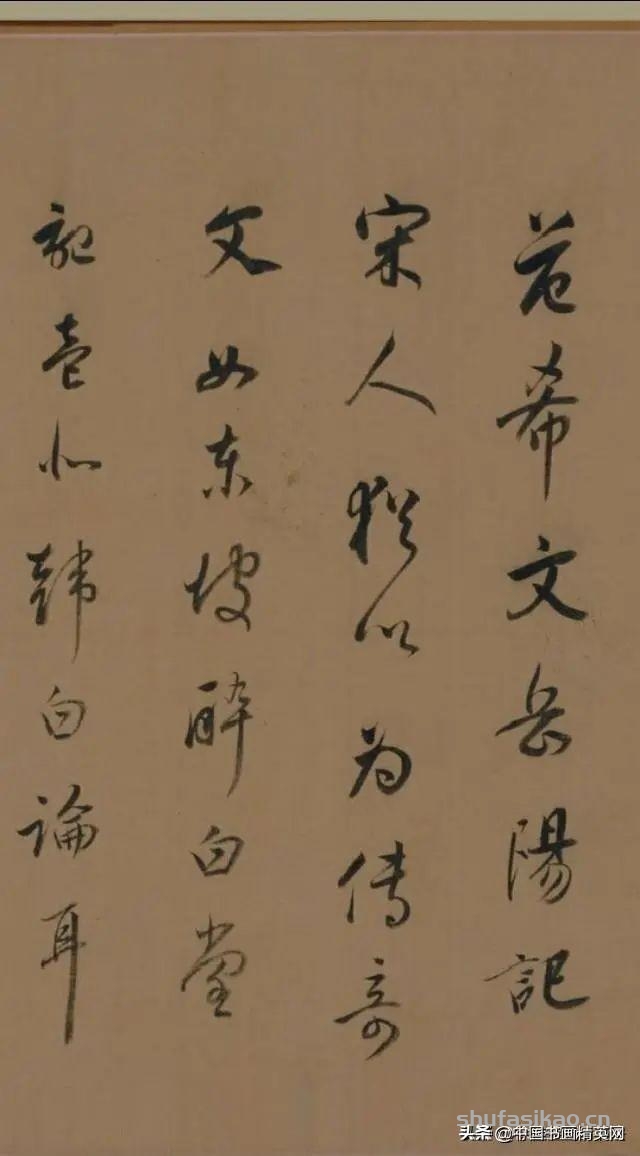 范希文岳陽記
宋人猶以為傳奇
文如東坡醉白堂
記壹似韓白論耳
shufasikao.cn
头条 @中国书画精英网